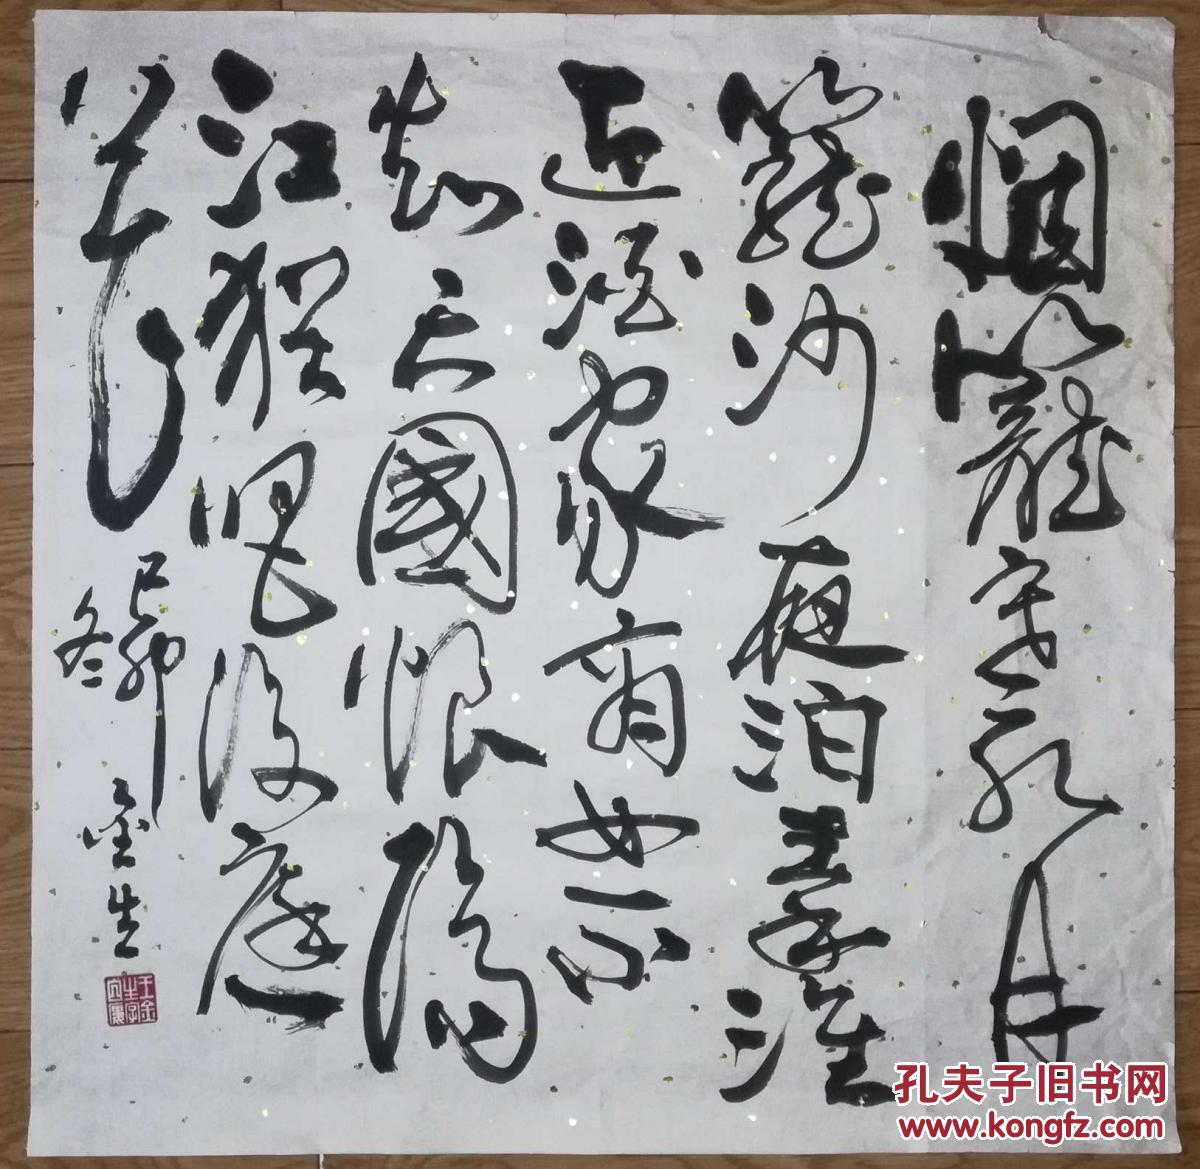 烟籠寒水月
籠沙夜泊秦淮
近酒家商女不
知亡國恨隔
江猶唱後庭
花
己卯
冬
金生
王金
孔夫子旧书网
www.kongfz.com